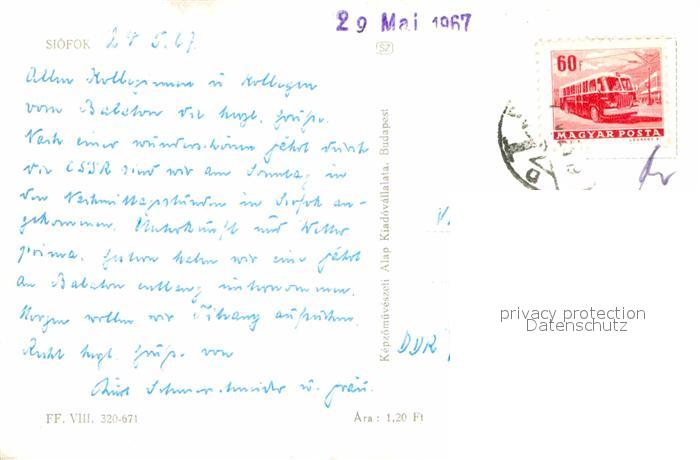 29 Mai 1967
SIÓFOK 24 5. 67
SZ
60f
MAGYAR POSTA
Allen Kolleginnen u Kollegen
vom Balaton die hrzl. Grüße.
Nach einer wunderschönen Fahrt durch
die CSSR sind wir am Sonntag in
den Nachmittagsstunden in Siofok an-
gekommen. Unterkunft und Wetter
prima. Gestern haben wir eine Fahrt
am Balaton entlang unternommen.
Morgen wollen wir Tihany aufsuchen.
Recht hrzl. Grüße von
Kurt u. Frau.
Képzőművészeti Alap Kiadóvállalata, Budapest
DDR
privacy protection
Datenschutz
FF. VIII. 320-671
Ára : 1,20 Ft